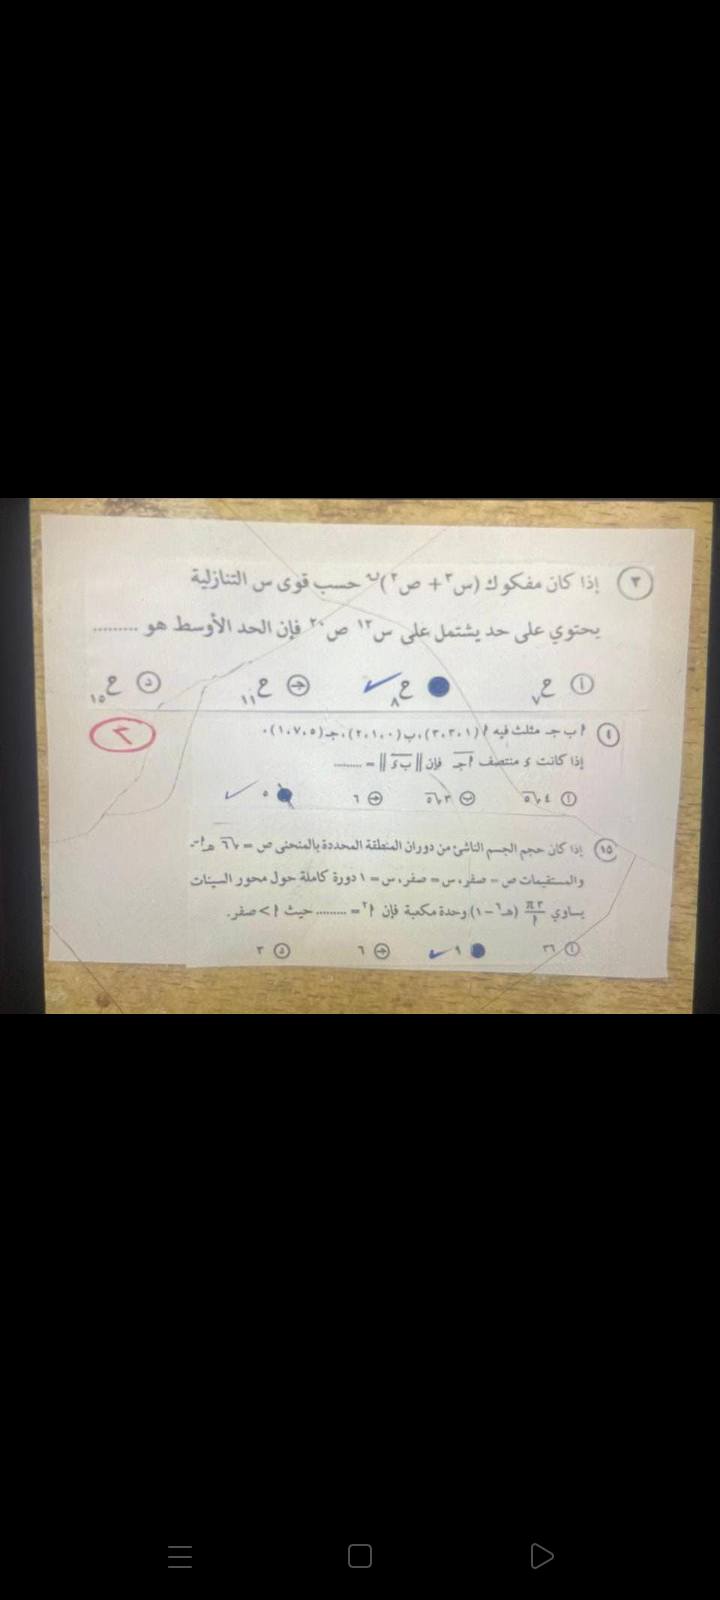 ٣ إذا كان مفكوك (س٣ + ص٢)ن حسب قوى س التنازلية
يحتوي على حد يشتمل على س١٢ ص٢٠ فإن الحد الأوسط هو .........
أ ح٧ ح٨ ✓ جـ ح١١ د ح١٥
٢
٤ أ ب جـ مثلث فيه أ(٣،٣،١)، ب(٢،١،٠)، جـ(١،٧،٥)،
إذا كانت ء منتصف أجـ فإن || بء || = .........
أ ٤√٥ ب ٣√٥ جـ ٦ ٥ ✓
١٥ إذا كان حجم الجسم الناشئ من دوران المنطقة المحددة بالمنحنى ص =
والمستقيمات ص = صفر، س = صفر، س = ١ دورة كاملة حول محور السينات
يساوي (هـ٦ - ١) وحدة مكعبة فإن أ٢ = ......... حيث أ > صفر.
أ ٣٦ ٩ ✓ جـ ٦ د ٣